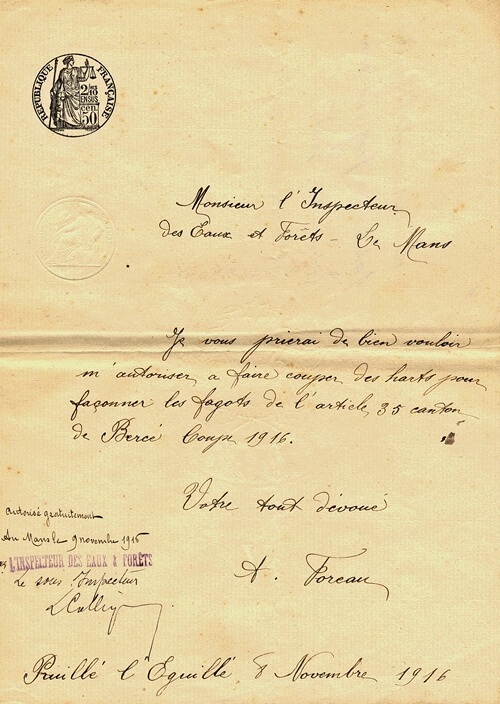 RÉPUBLIQUE FRANÇAISE
2/10
EN SUS
50 cen.
Monsieur l'Inspecteur
des Eaux et Forêts - Le Mans
Je vous prierai de bien vouloir
m'autoriser a faire couper des harts pour
façonner les fagots de l'article 35 canton
de Bercé Coupe 1916.
Votre tout dévoué
A. Foreau
autorisé gratuitement
Au Mans le 9 novembre 1916
L'INSPECTEUR DES EAUX & FORÊTS
Le sous Inspecteur
Pruillé l'Eguillé 8 Novembre 1916